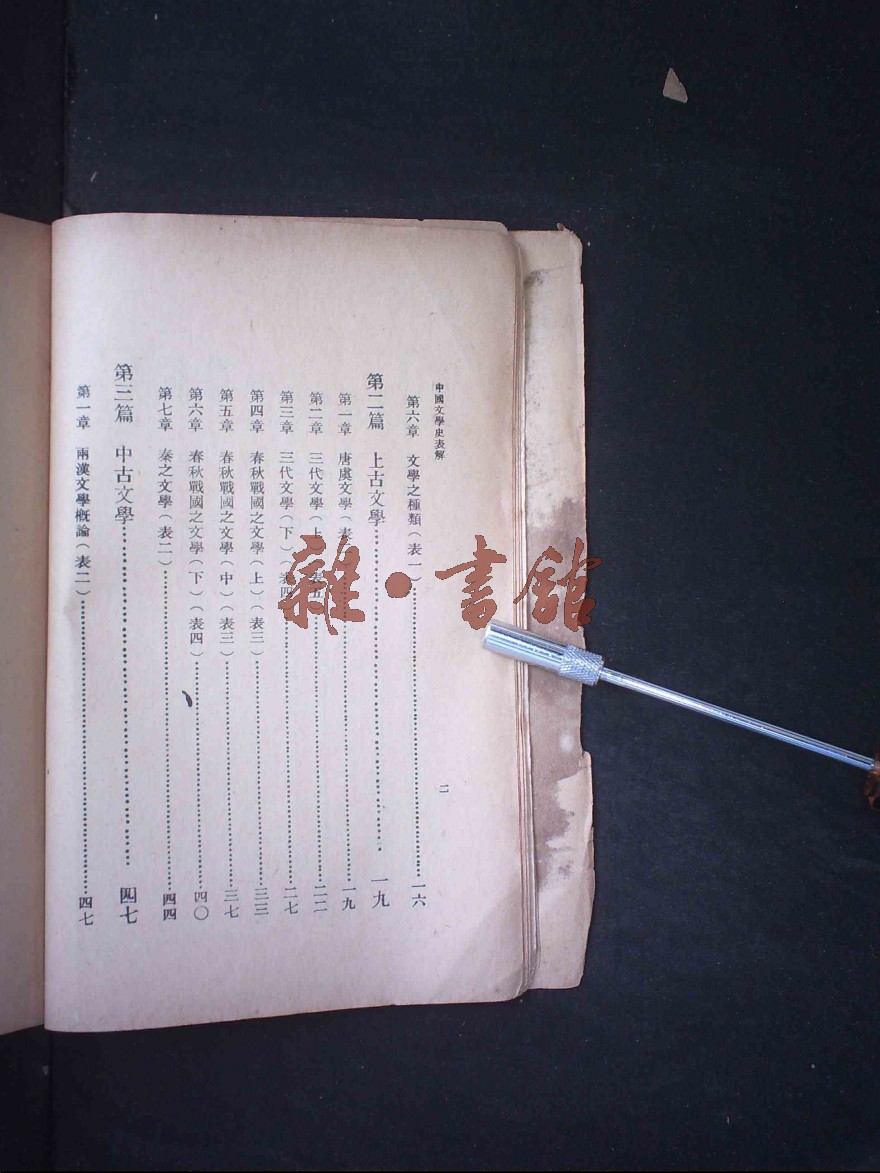 中國文學史表解
二
第六章 文學之種類(表一)……一六
第二篇 上古文學……一九
第一章 唐虞文學(表……一九
第二章 三代文學(上)(表五)……二二
第三章 三代文學(下)(表四)……二七
第四章 春秋戰國之文學(上)(表三)……三三
第五章 春秋戰國之文學(中)(表三)……三七
第六章 春秋戰國之文學(下)(表四)……四〇
第七章 秦之文學(表二)……四四
第三篇 中古文學……四七
第一章 兩漢文學概論(表二)……四七
雜·書館